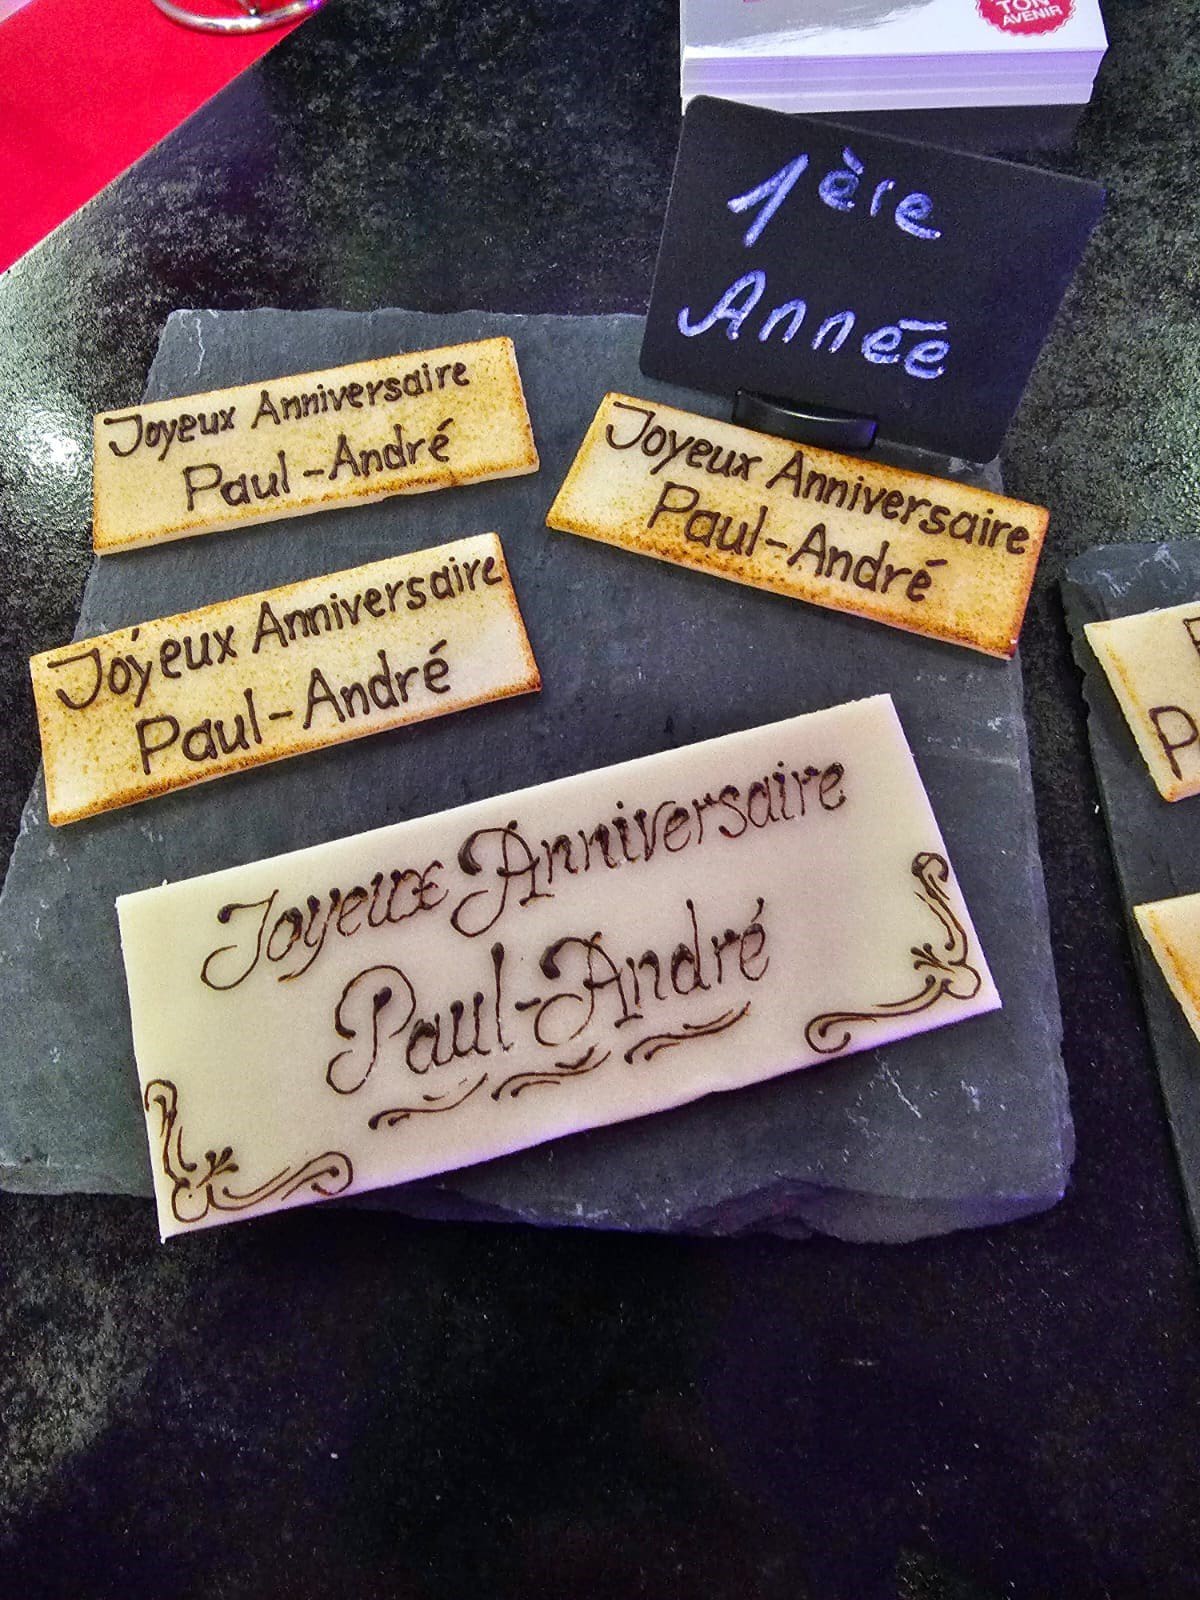 TON
AVENIR
1ère
Année
Joyeux Anniversaire
Paul-André
Joyeux Anniversaire
Paul-André
Joyeux Anniversaire
Paul-André
Joyeux Anniversaire
Paul-André
P